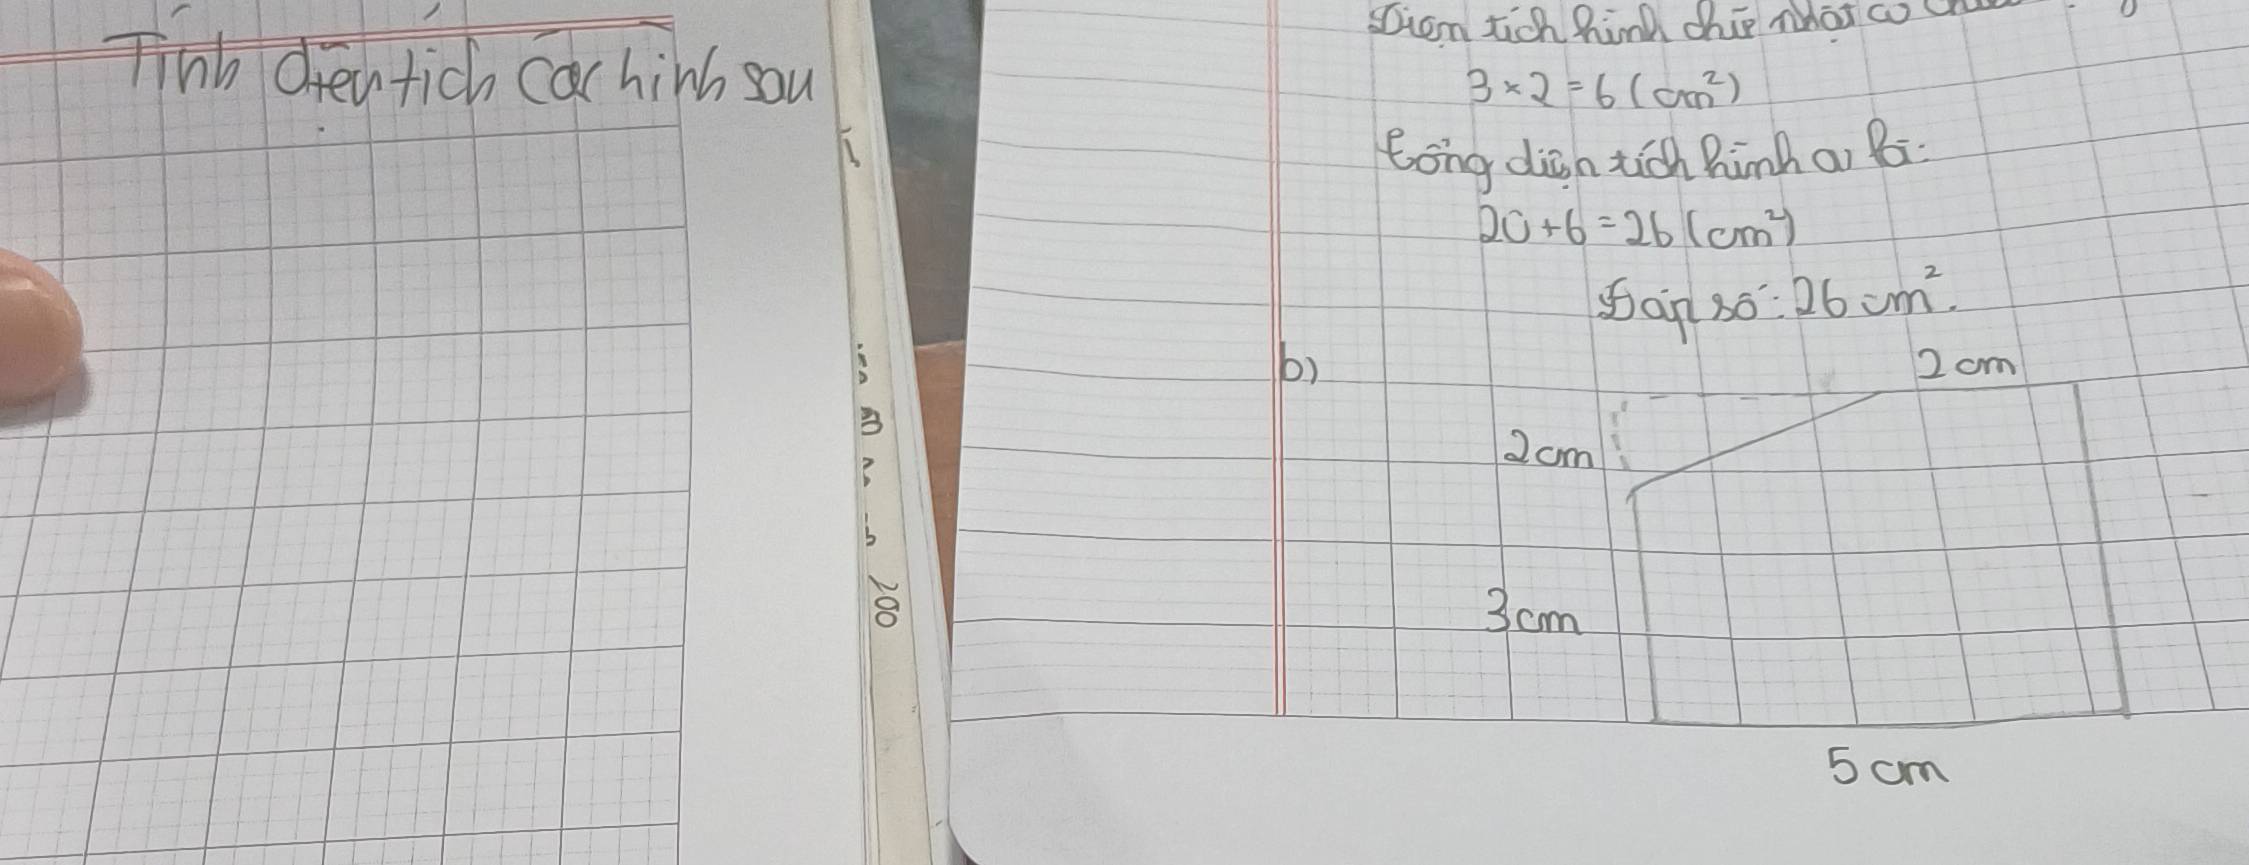 Tính diện tích các hình sau
200
Diện tích hình chữ nhật có
3 × 2 = 6 (cm²)
tổng diện tích hình a là:
20 + 6 = 26 (cm²)
Đáp số: 26 cm².
b)
2 cm
2 cm
3 cm
5 cm